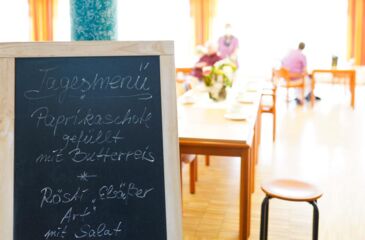 Tagesmenü
Paprikaschote
gefüllt
mit Butterreis
*
Rösti „Elsäßer
Art"
mit Salat